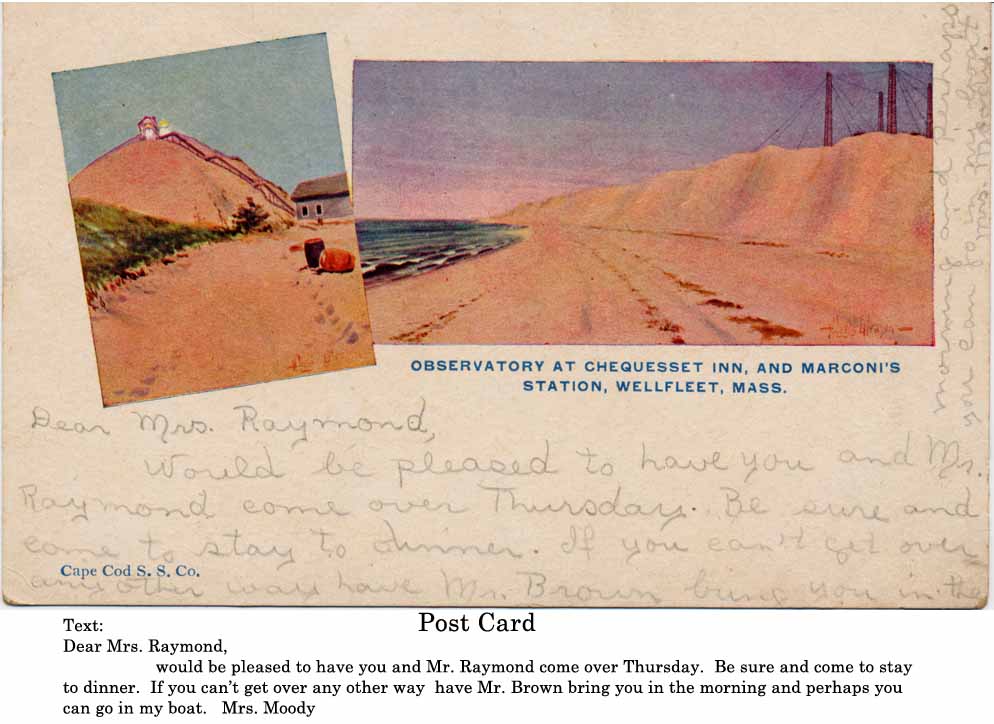 OBSERVATORY AT CHEQUESSET INN, AND MARCONI'S
STATION, WELLFLEET, MASS.
Dear Mrs. Raymond,
Would be pleased to have you and Mr.
Raymond come over Thursday. Be sure and
come to stay to dinner. If you can't get over
Cape Cod S. S. Co.
any other way have Mr. Brown bring you in the
morning and perhaps
you can go in my boat
Mrs. Moody.
Post Card
Text:
Dear Mrs. Raymond,
would be pleased to have you and Mr. Raymond come over Thursday. Be sure and come to stay
to dinner. If you can't get over any other way have Mr. Brown bring you in the morning and perhaps you
can go in my boat. Mrs. Moody